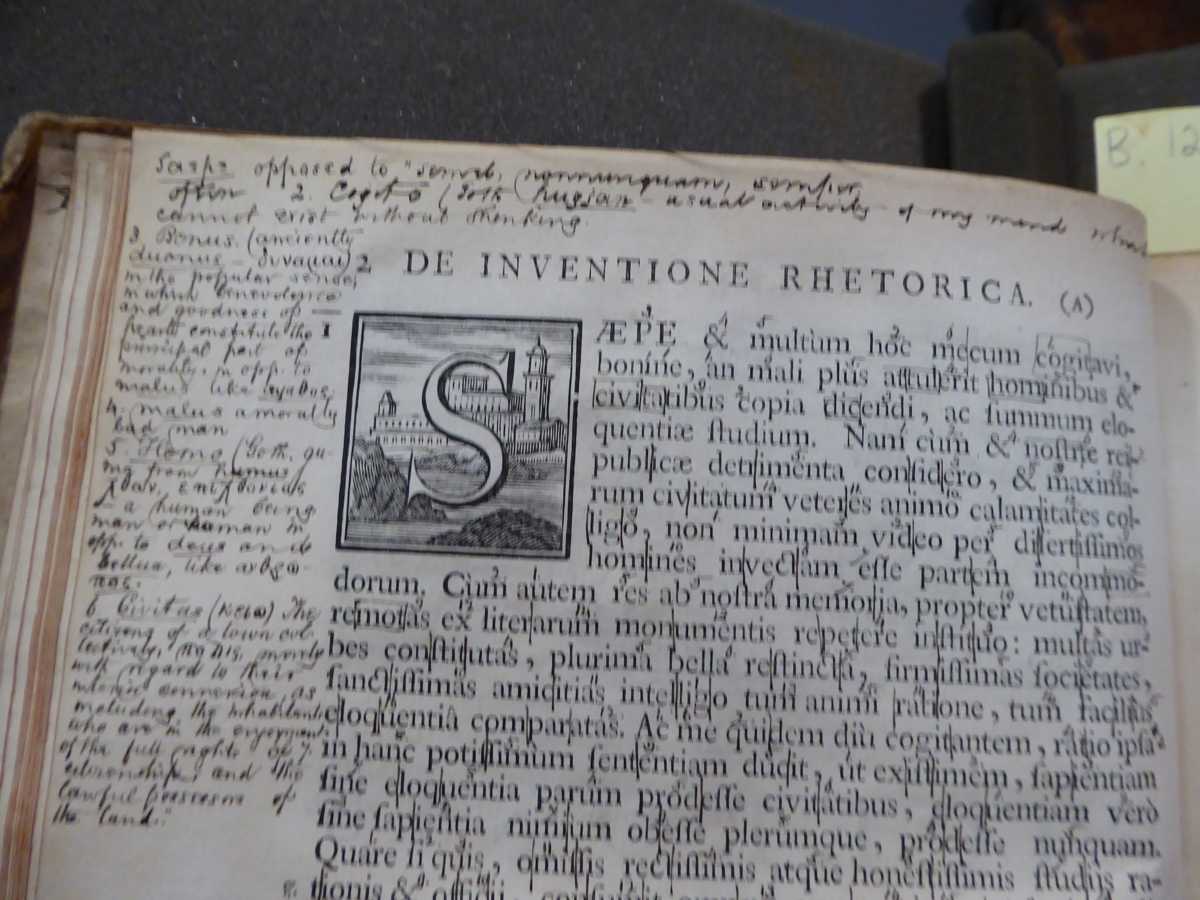 Saepe opposed to "semel, nonnunquam, semper,
often 2. Cogito (Goth hugjan - usual activity of my mind
cannot exist without thinking.
3. Bonus. (anciently
duonus -
in the popular sense,
in which benevolence
and goodness of
heart constitute the
principal part of
morality, in opp. to
malus like
4. malus a morally
bad man
5. Homo (Goth. gu-
ma from humus)
- a human being
man or woman in
opp. to deus and
bellua, like
6. Civitas The
citizens of a town col-
lectively, merely
with regard to their
connexion, as
including the inhabitants
who are in the enjoyment
of the full rights of
citizenship, and the
lawful possession of
the land."
B. 12
2 DE INVENTIONE RHETORICA. (A)
1
SÆPE & multùm hoc mecum cogitavi,
bonine, an mali plus attulerit hominibus &
civitatibus copia dicendi, ac summum elo-
quentiæ studium. Nam cùm & nostræ rei-
publicæ detrimenta considero, & maxima-
rum civitatum veteres animo calamitates col-
ligo, non minimam video per disertissimos
homines invectam esse partem incommo-
dorum. Cùm autem res ab nostra memoria, propter vetustatem,
remotas ex literarum monumentis repetere instituo: multas ur-
bes constitutas, plurima bella restincta, firmissimas societates,
sanctissimas amicitias intelligo tum animi ratione, tum facilius
eloquentiâ comparatas. Ac me quidem diu cogitantem, ratio ipsa
in hanc potissimùm sententiam ducit, ut existimem, sapientiam
sine eloquentia parum prodesse civitatibus, eloquentiam verò
sine sapientia nimium obesse plerumque, prodesse nunquam.
Quare si quis, omissis rectissimis atque honestissimis studiis ra-
tionis & officii,